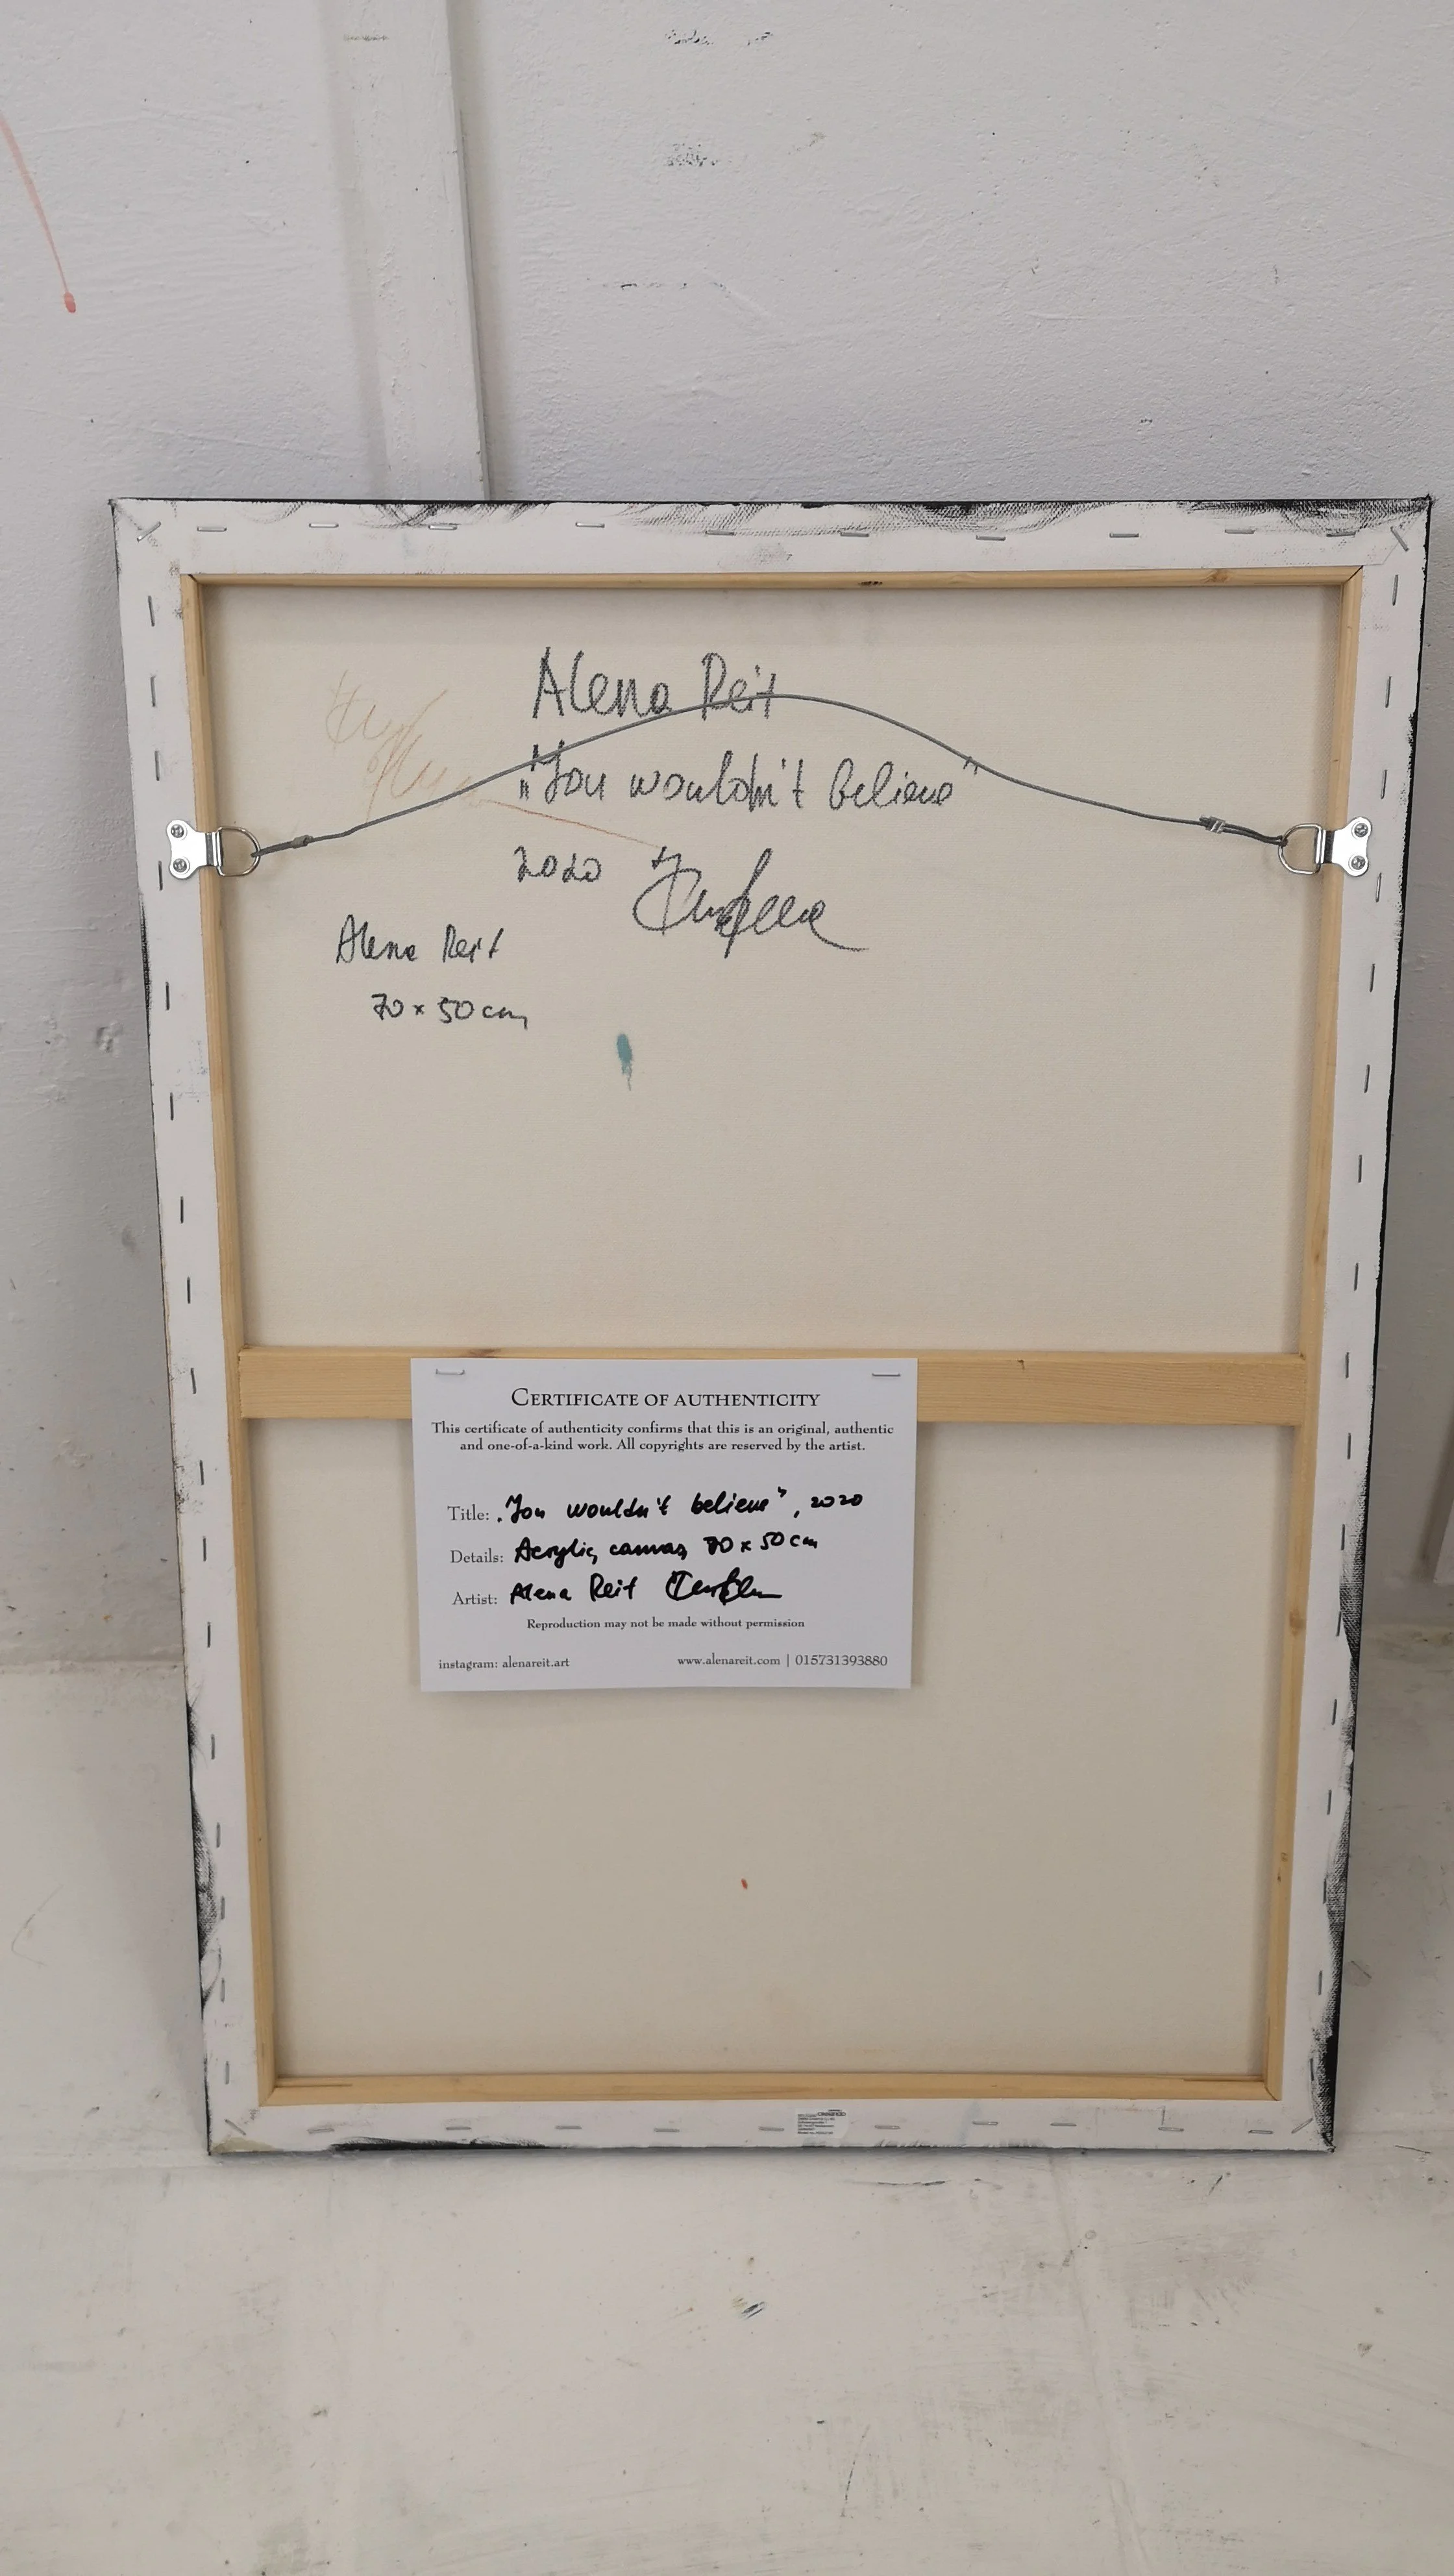 Alena Reit
"You wouldn't believe"
2020
Alena Reit
70 x 50 cm
CERTIFICATE OF AUTHENTICITY
This certificate of authenticity confirms that this is an original, authentic
and one-of-a-kind work. All copyrights are reserved by the artist.
Title: "You wouldn't believe", 2020
Details: Acrylic, canvas, 70 x 50 cm
Artist: Alena Reit
Reproduction may not be made without permission
instagram: alenareit.art
www.alenareit.com | 015731393880